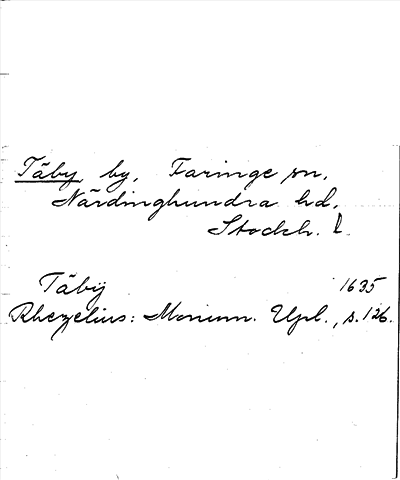 Täby by, Faringe sn,
Närdinghundra hd,
Stockh. l.
Täby 1635
Rhezelius: Monum. Upl., s. 126.